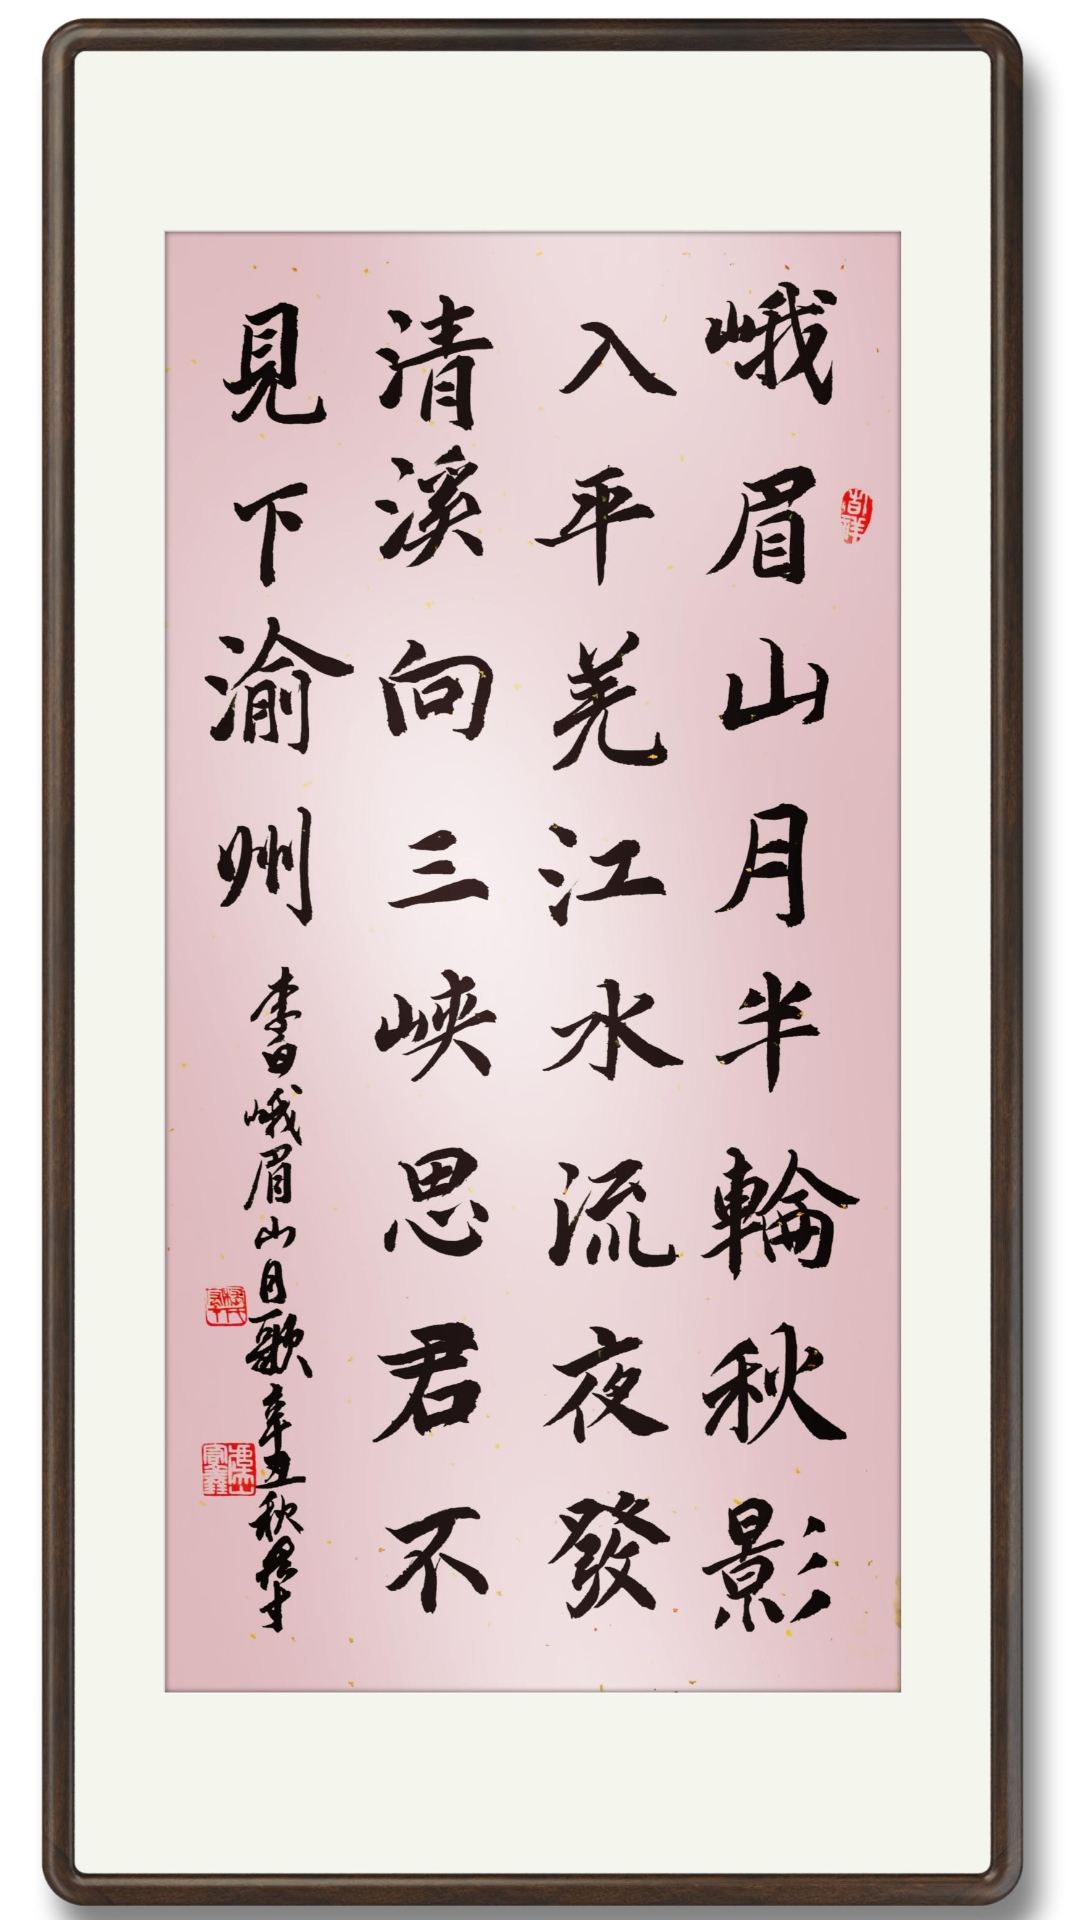 峨眉山月半輪秋影
入平羌江水流夜發
清溪向三峽思君不
見下渝州
李白峨眉山月歌辛丑秋
吉祥